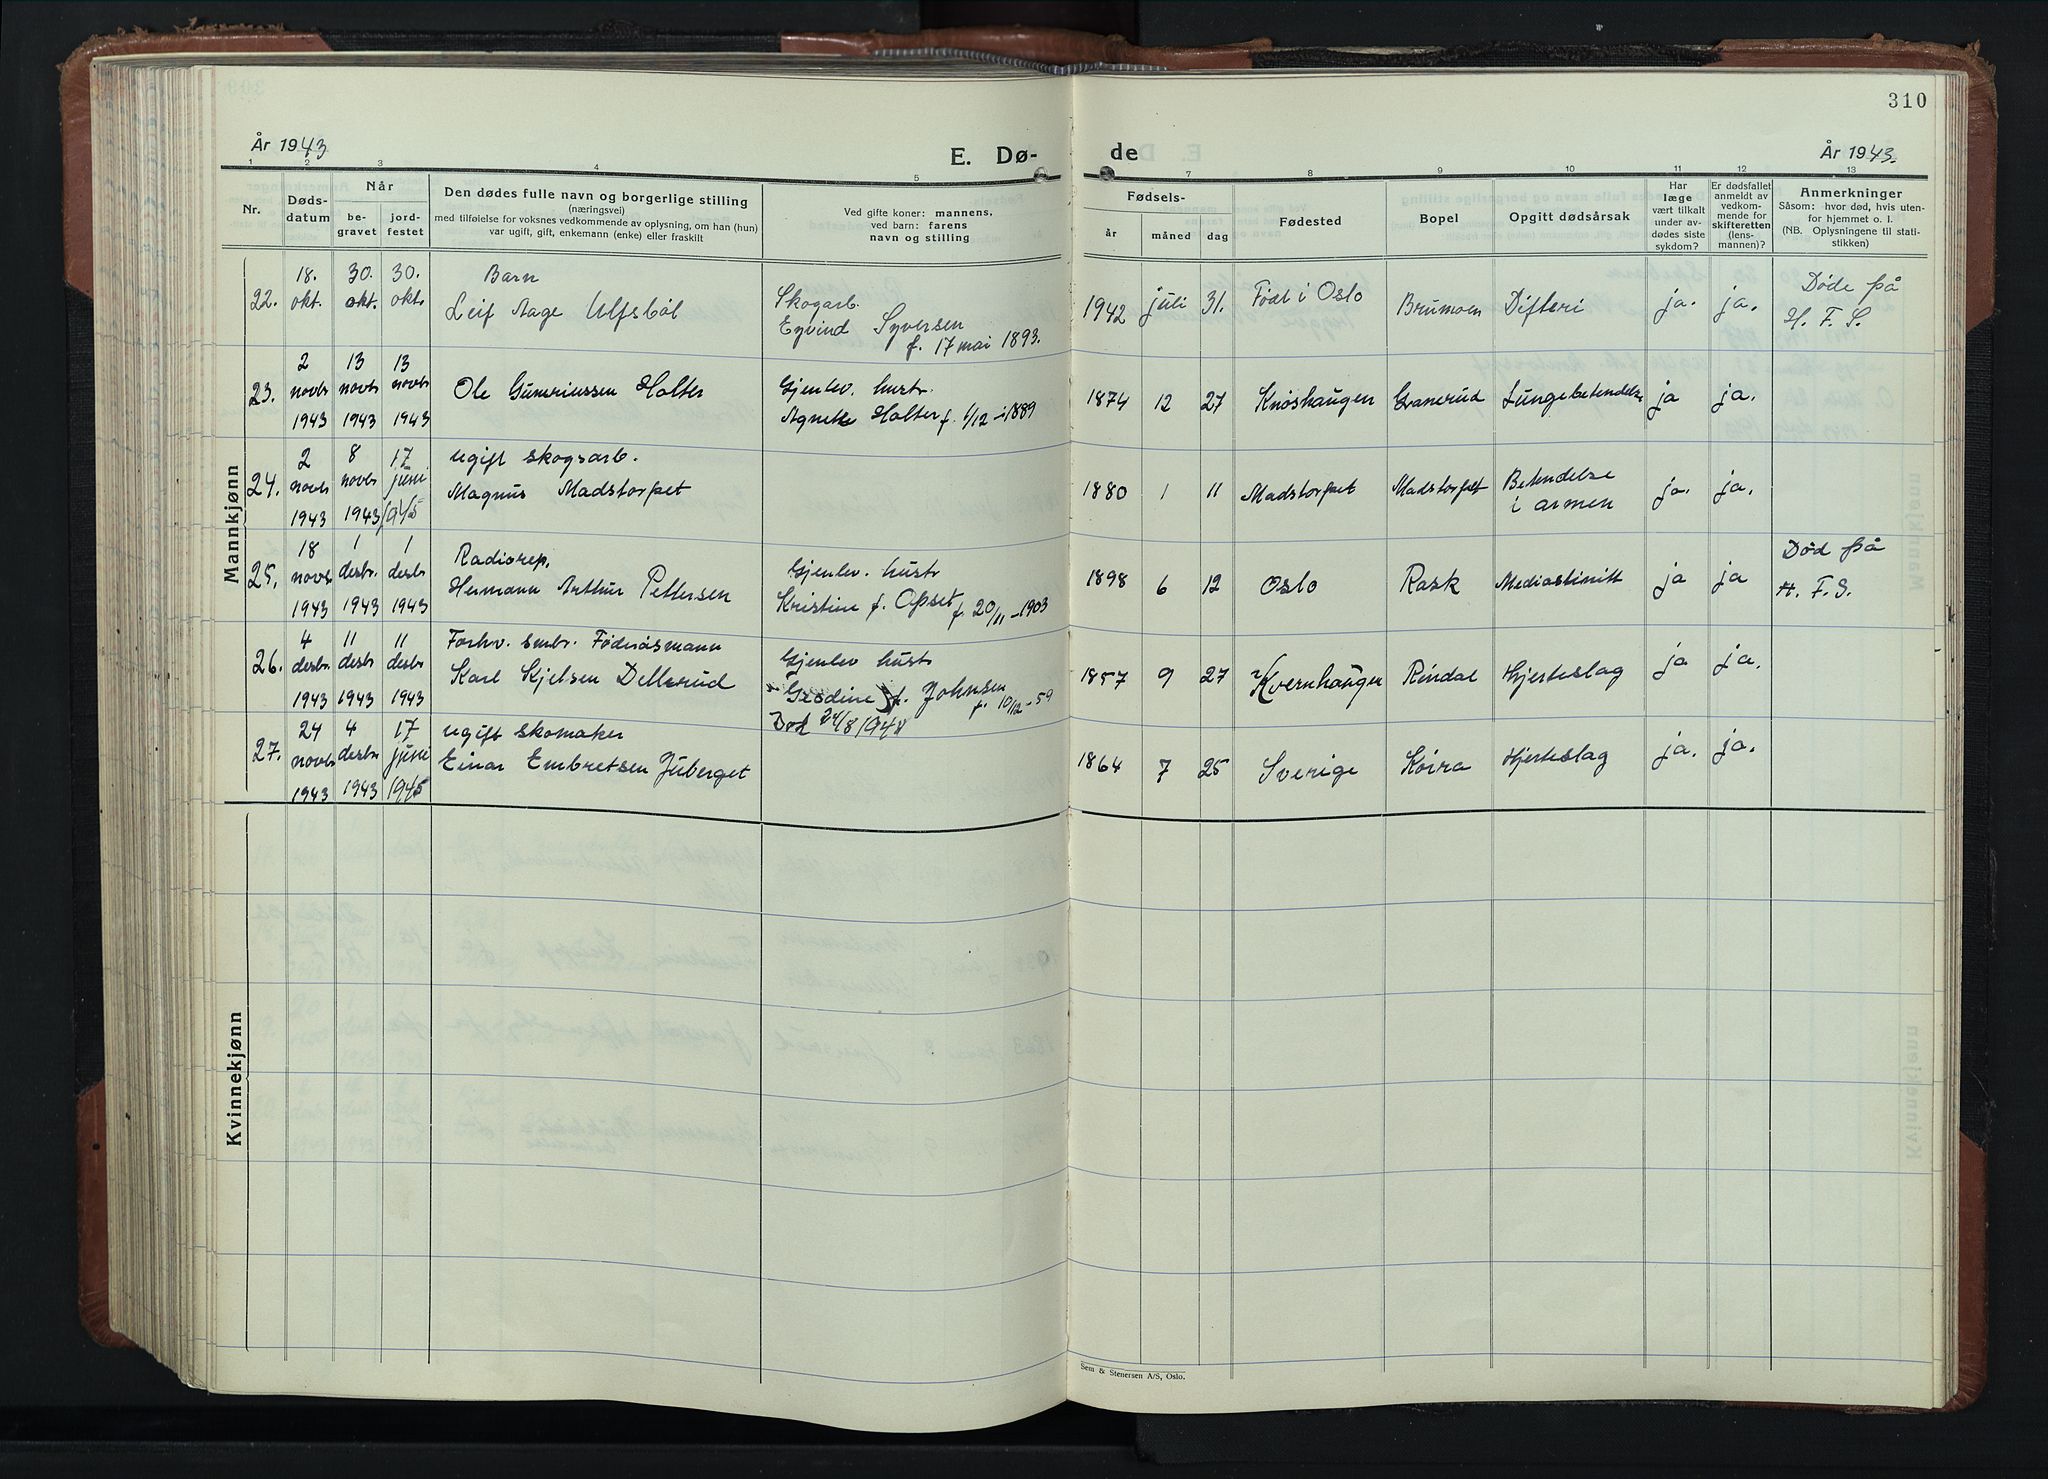 310
År 1943
E. Dø-
de
År 1943.
1 2 3 4 5 7 8 9 10 11 12 13
Nr.
Døds-
datum
Når
be-
gravet
jord-
festet
Den dødes fulle navn og borgerlige stilling
(næringsvei)
med tilføielse for voksnes vedkommende av oplysning, om han (hun)
var ugift, gift, enkemann (enke) eller fraskilt
Ved gifte koner: mannens,
ved barn: farens
navn og stilling
Fødsels-
år måned dag
Fødested
Bopel
Opgitt dødsårsak
Har
læge
vært tilkalt
under av-
dødes siste
sykdom?
Er dødsfallet
anmeldt av
vedkom-
mende for
skifteretten
(lens-
mannen)?
Anmerkninger
Såsom: hvor død, hvis uten-
for hjemmet o. l.
(NB. Oplysningene til stati-
stikken)
Mannkjønn
22.
18.
okt.
30.
okt.
30.
okt.
Barn
Leif Aage Ulfsböl
Skogarb.
Eyvind Syversen
f. 17 mai 1893.
1942 juli 31. Født i Oslo Brumoen Difteri ja. ja.
Døde på
H. F. S.
23.
2
novbr
1943
13
novbr
1943
13
novbr
1943
Ole Guneriussen Holter
Gjenlev. hustr.
Agnette Holter f. 1/12 - 1889
1874 12 27 Knoshaugen Granerud Lungebetendelse ja ja.
24.
2
novbr
1943
8
novbr
1943
17
juni
1945
ugift skogsarb.
Magnus Madstorpet
1880 1 11 Madstorpet Madstorpet
Betendelse
i armen
ja. ja.
25.
18
novbr
1943
1
desbr.
1943
1
desbr
1943
Radiorep.
Hermann Arthur Pettersen
Gjenlev. hustr
Kristine f. Opset f. 20/11 - 1903
1898 6 12 Oslo Rask Mediastinitt ja ja
Død på
H. F. S.
26.
4
desbr.
1943
11
desbr
1943
11
desbr
1943
Forhv. smbr. Föderåsmann
Karl Kjelsen Dellerud
Gjenlev hustr
f. Johnsen
f. 10/12 - 59
Död 24/8 1948
1857 9 27 Kvernhaugen Rindal Hjerteslag ja ja.
27.
24
novbr
1943
4
desbr
1943
17
juni
1945
ugift skomaker
Einar Embretsen Juberget
1864 7 25 Sverige Koira Hjerteslag ja. ja.
Kvinnekjønn
Sem & Stenersen A/S, Oslo.